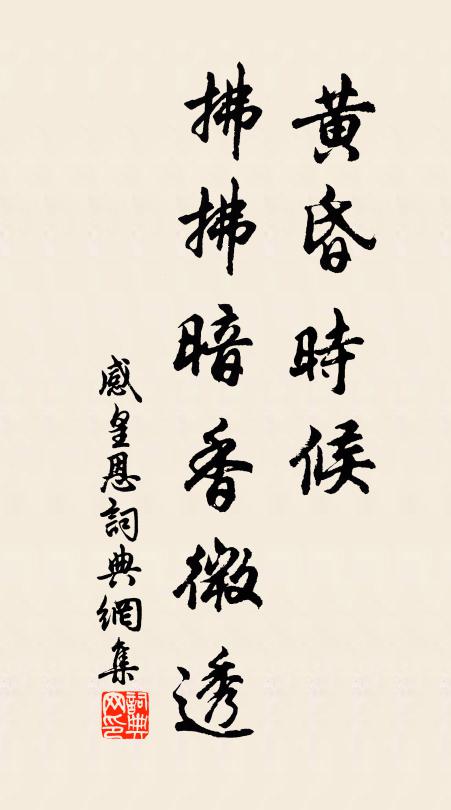 黄昏時候
拂拂暗香微透
感皇恩詞典網集
詞典網印